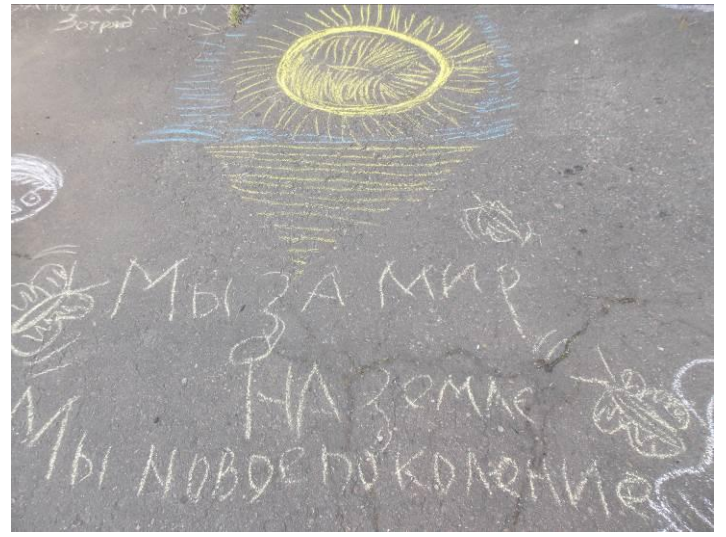 Дарья
3 отряд
Мы за мир
на земле
Мы новое поколение